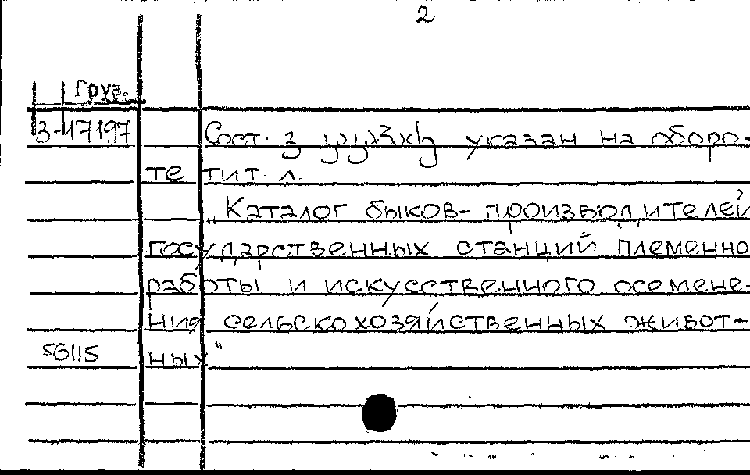 2
Груз.
3-47197
Сост. указан на оборо-
те тит. л.
„Каталог быков-производителей
государственных станций племенно
работы и искусственного осемене-
ния сельскохозяйственных живот-
56115 ных"